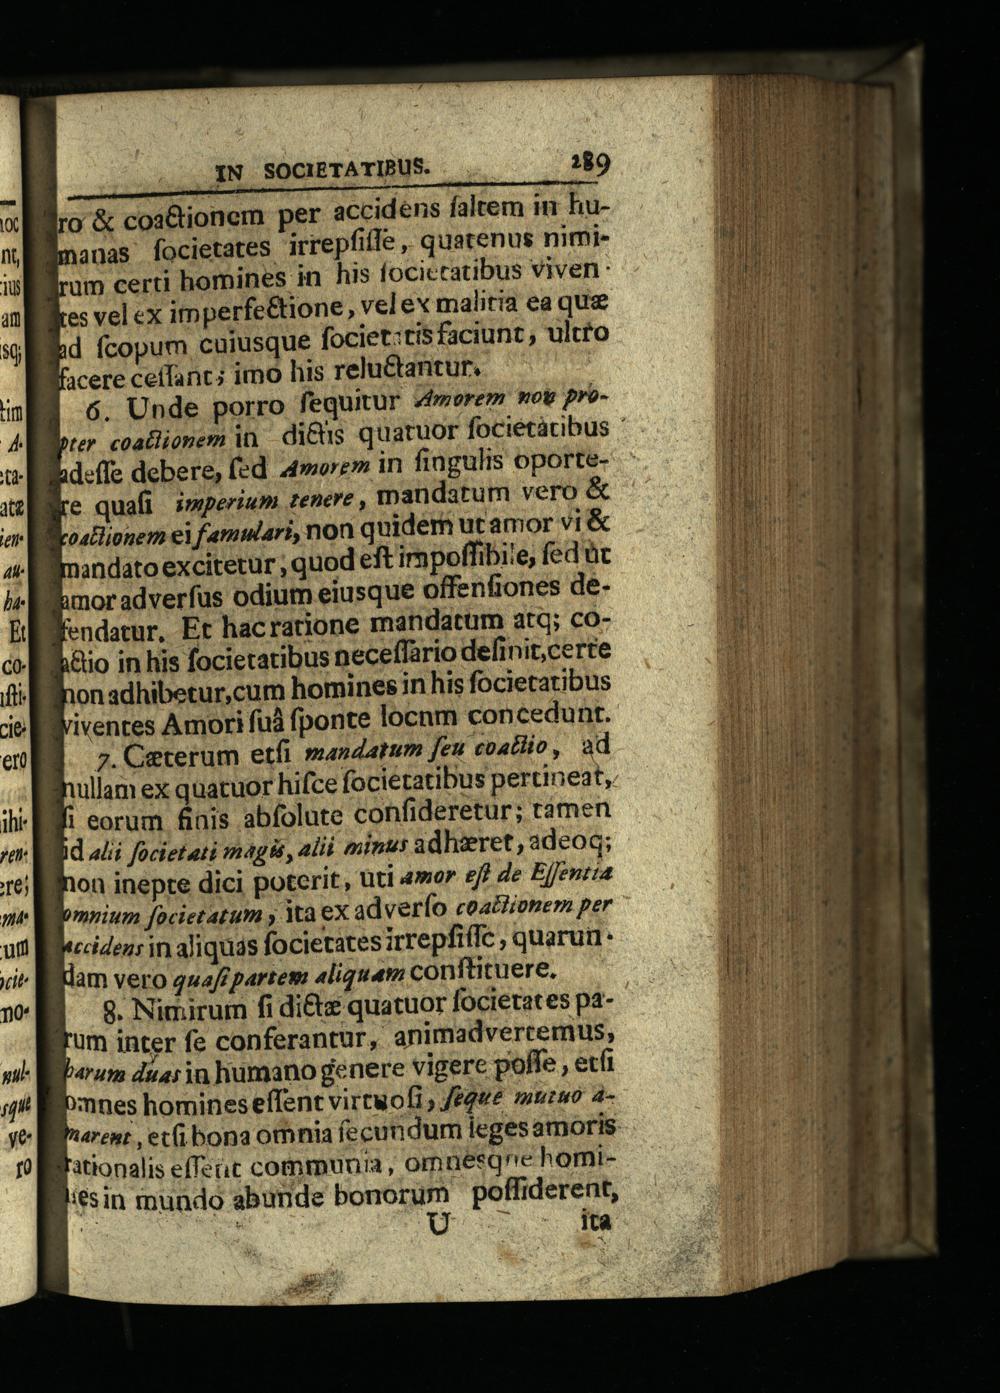 IN SOCIETATIBUS. 289
ro & coactionem per accidens ſaltem in hu-
manas ſocietates irrepſiſſe, quatenus nimi-
rum certi homines in his ſocietatibus viven-
tes vel ex imperfectione, vel ex malitia ea quæ
ad ſcopum cuiusque ſocietatis faciunt, ultro
facere ceſſant; imo his reluctantur.
6. Unde porro ſequitur Amorem non pro-
pter coactionem in dictis quatuor ſocietatibus
adeſſe debere, ſed Amorem in ſingulis oporte-
re quaſi imperium tenere, mandatum vero &
coactionem ei famulari, non quidem ut amor vi &
mandato excitetur, quod eſt impoſſibile, ſed ut
amor adverſus odium eiusque offenſiones de-
fendatur. Et hac ratione mandatum atq; co-
actio in his ſocietatibus neceſſario deſinit, certe
non adhibetur, cum homines in his ſocietatibus
viventes Amori ſuâ ſponte locnm concedunt.
7. Cæterum etſi mandatum ſeu coactio, ad
nullam ex quatuor hiſce ſocietatibus pertineat,
ſi eorum finis abſolute conſideretur; tamen
id alii ſocietati magis, alii minus adhæret, adeoq;
non inepte dici poterit, uti amor eſt de Eſſentia
omnium ſocietatum, ita ex adverſo coactionem per
accidens in aliquas ſocietates irrepſiſſe, quarun-
dam vero quaſi partem aliquam conſtituere.
8. Nimirum ſi dictæ quatuor ſocietates pa-
rum inter ſe conferantur, animadvertemus,
harum duas in humano genere vigere poſſe, etſi
omnes homines eſſent virtuoſi, ſeque mutuo a-
marent, etſi bona omnia ſecundum leges amoris
rationalis eſſent communia, omnesque homi-
nes in mundo abunde bonorum poſſiderent,
U ita